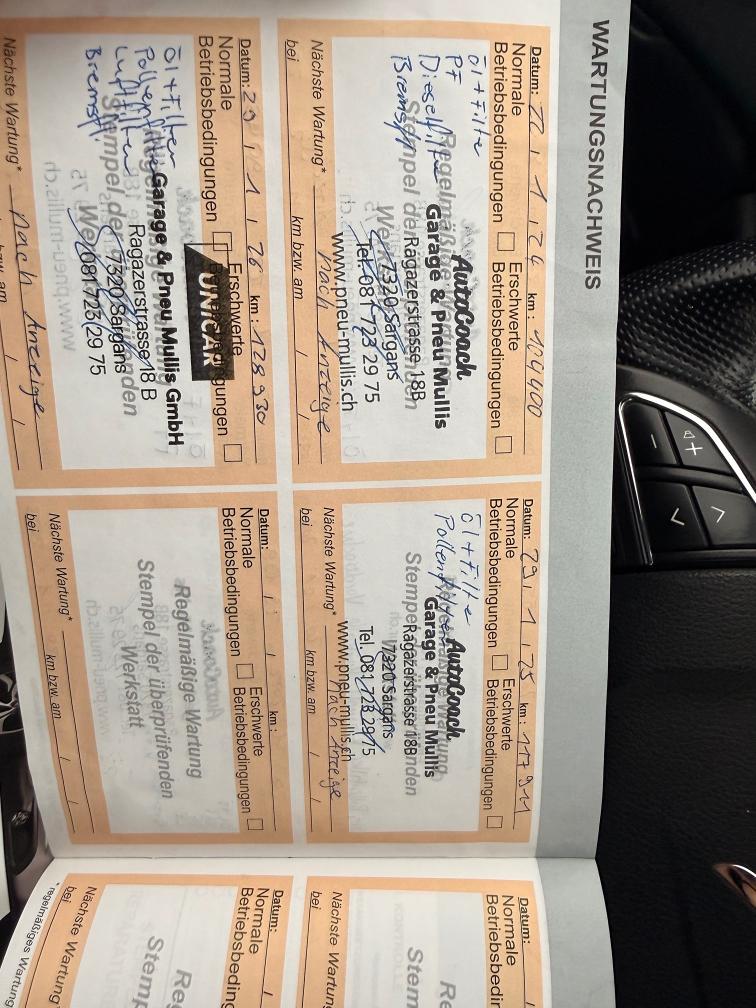 WARTUNGSNACHWEIS
Datum: 22, 1, 24 km: 104400
Normale Betriebsbedingungen
Erschwerte Betriebsbedingungen
Öl + Filter
PF
Dieselfilter
Bremsfl.
AutoCoach
Garage & Pneu Mullis
Ragazerstrasse 18B
7320 Sargans
Tel. 081 723 29 75
www.pneu-mullis.ch
Nächste Wartung* Nach Anzeige
bei km bzw. am / /
Datum: 29, 1, 25 km:
Normale Betriebsbedingungen
Erschwerte Betriebsbedingungen
Öl + Filter
AutoCoach
Garage & Pneu Mullis
Ragazerstrasse 18B
7320 Sargans
Tel. 081 723 29 75
www.pneu-mullis.ch
Nächste Wartung* Nach Anzeige
bei km bzw. am / /
Datum: 29, 1, 26 km: 128930
Normale Betriebsbedingungen
Erschwerte Betriebsbedingungen
UNICAR
Öl + Filter
Pollenfilter
Luftfilter
Bremsfl.
Garage & Pneu Mullis GmbH
Ragazerstrasse 18 B
7320 Sargans
081 723 29 75
Nächste Wartung* Nach Anzeige
km bzw. am / /
Datum: / / km:
Normale Betriebsbedingungen
Erschwerte Betriebsbedingungen
Regelmäßige Wartung
Stempel der überprüfenden
Werkstatt
Nächste Wartung*
bei km bzw. am / /
Datum:
Normale
Nächste Wartung*
bei
Datum:
Normale
Nächste Wartung*
bei
* regelmäßiges Wartung